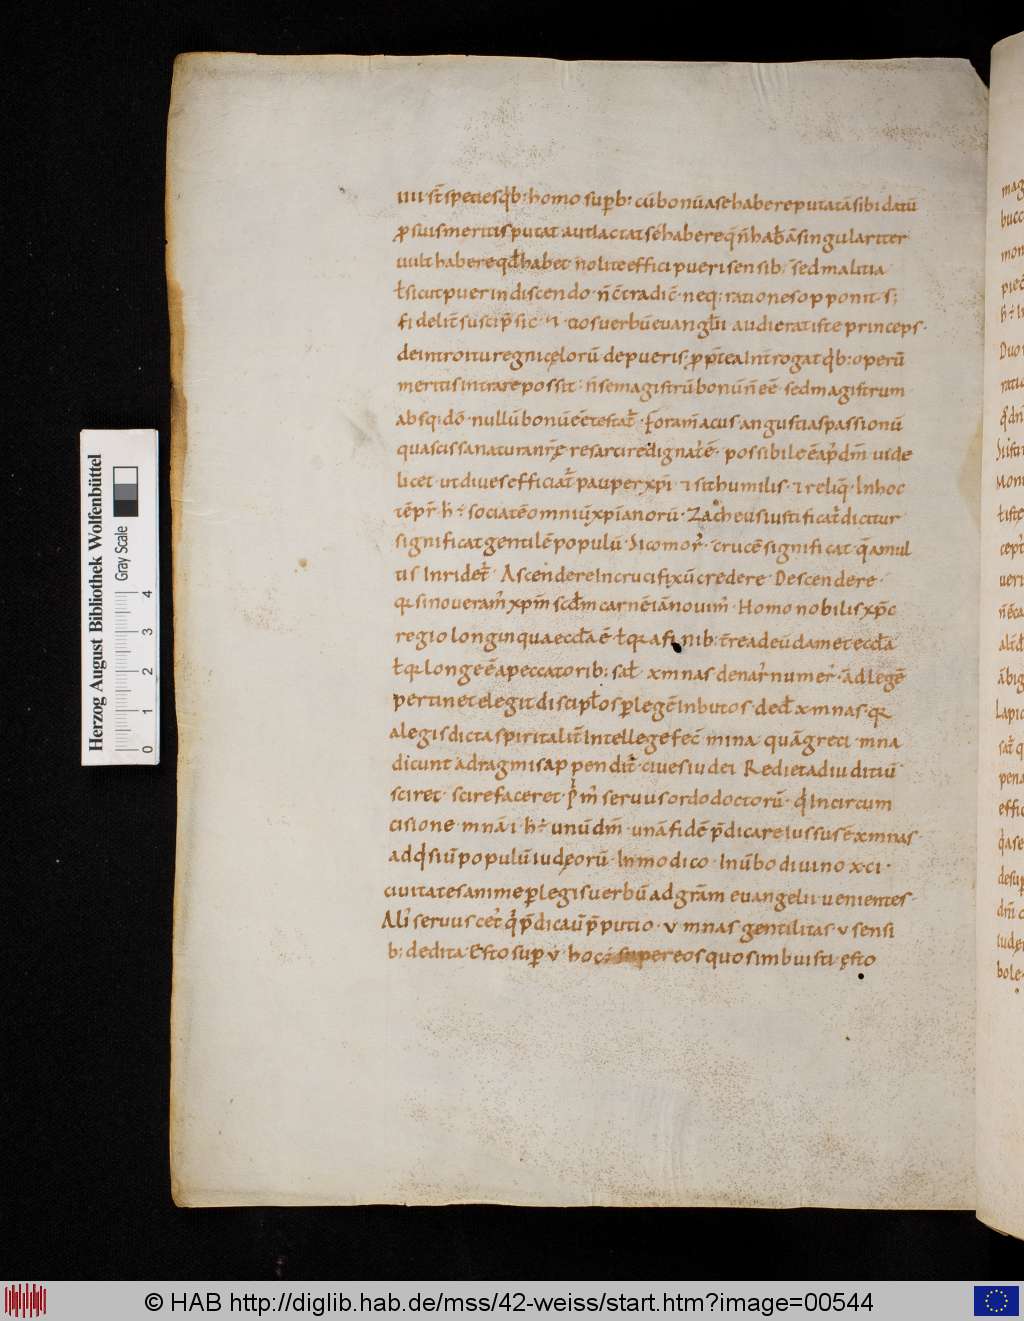 IIII · st̄ species qb: homo supb: cū bonū a se habere putat aᷓ sibi datū
ꝓ suis meritis putat aut lactat sé habere q̄ n̄ hab& aᷓ singulariter
uult habere qd habet · nolite effici pueri sensib; sed malitia
ł sicut puer in discendo · n̄ c̄tradic̄ · neq; rationes opponit · s;
fidelit̄ suscip̄ sic · ⁊ · uos uerbū euanglīi audierat iste princeps ·
de introitu regni cęlorū de pueris · ꝓpt̄ea Introgat qb: operū
meritis intrare possit · n̄ se magistrū bonū n̄ eē sed magistrum
absq; dō · nullū bonū eē testat̄ · foram̄ acus angustias passionū
quas cissa natura nr̄ę resarcire dignat̄ ē · possibile ē ap̄ dm̄ uide
licet ut diues efficiat̄ pauper xpī · ⁊ sit humilis · ⁊ reliq̄ · In hoc
tēpr̄ · h · ÷ societatē omniū xpīanorū · Zacheus iustificat̄ dicitur
significat gentilē populū · Sicomor̄ · crucē significat quam mul
tis Inridet̄ Ascendere In crucifixū credere Descendere ·
qr si noueram̄ xpm̄ scdm carnē iā nouim̄ · Homo nobilis xp̄c
regio longinqua ecclā ē ł qr a finib: t̄re ad eū clamet ecclā
ł qr longe ē a peccatorib; sat̄ · x mnas denar̄ numer̄ · ad legē
pertinet elegit discipłos p legē Inbutos · ded · x · mnas · qr
a legis dicta spiritalit̄ Intellege fec̄ mina quā greci · mna
dicunt adragmis appendit̄ · ciues iudei Rediet ad iuditiū
sciret · scire faceret · P̄m̄ seruus ordo doctorū · q In circum
cisione · mnā · i · h · ÷ unū dm̄ · unā fidē p̄dicare iussus ē x mnas ·
adqsiū populū iudęorū · In modico · In ūbo diuino x · ci ·
ciuitates animę p legis uerbū ad gr̄am euangelii uenientes ·
Ali̓ seruus cet̄ q p̄dicaū p̄putio · v · mnas gentilitas v sensi
b; dedita Esto sup v · hoc ÷ super eos quos imbuisti esto
mag
bucc
mon
Duo
ratio
Moni
cept
ueri
Lapic
pena
effic
desup
iudę
bole
Herzog August Bibliothek Wolfenbüttel
Gray Scale
0 1 2 3 4
© HAB http://diglib.hab.de/mss/42-weiss/start.htm?image=00544